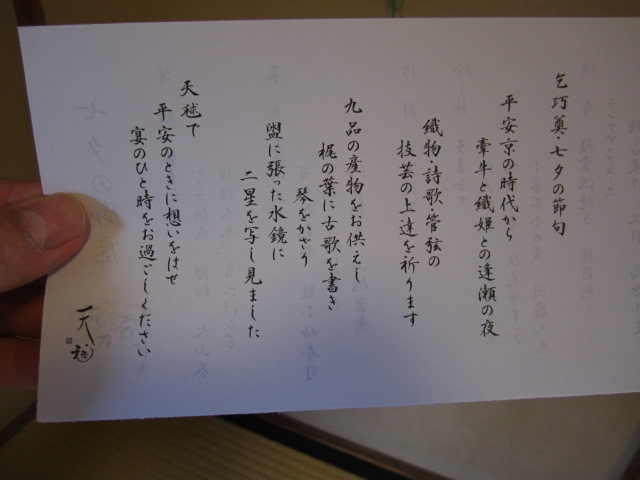 乞巧奠・七夕の節句
平安京の時代から
牽牛と織姫との逢瀬の夜
織物・詩歌・管弦の
技芸の上達を祈ります
九品の産物をお供えし
梶の葉に古歌を書き
琴をかざり
盥に張った水鏡に
二星を写し見ました
天毬で
平安のときに想いをはせ
宴のひと時をお過ごしください
天毬